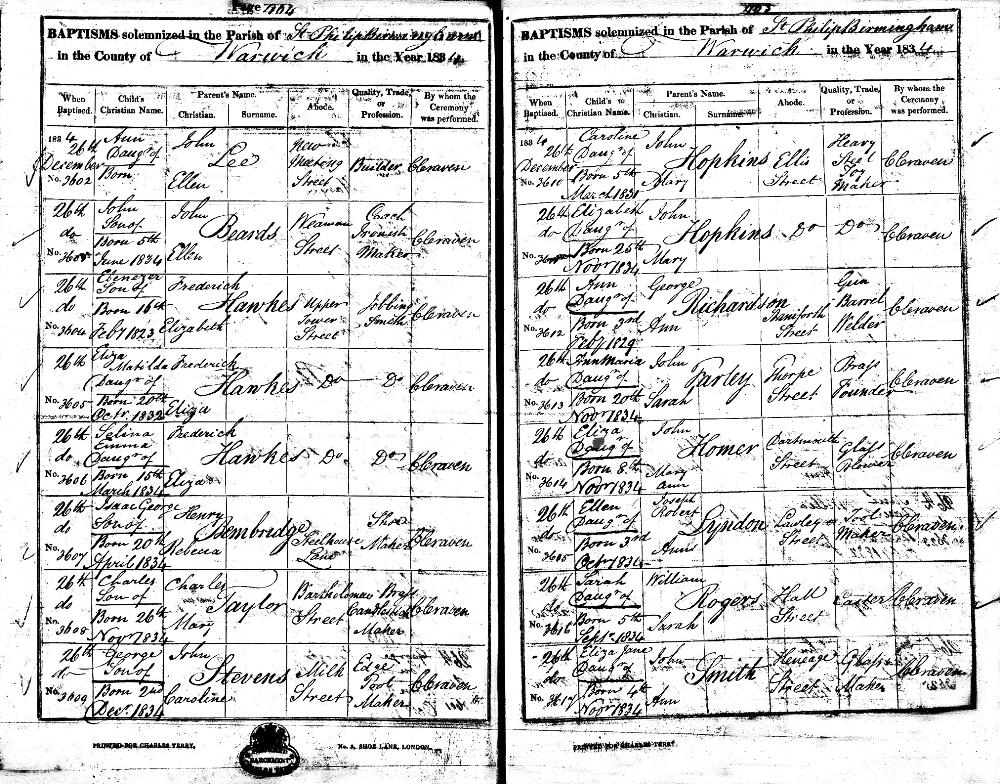 Page 704
BAPTISMS solemnized in the Parish of St Philip Birmingham
in the County of Warwick in the Year 1834
When Baptised. Child's Christian Name. Parent's Name. Christian. Surname. Abode. Quality, Trade, or Profession. By whom the Ceremony was performed.
1834 26th December No. 3602 Ann Daugr of Born John Ellen Lee New Meeting Street Builder C Craven
26th do 3603 John Son of Born 5th June 1834 John Ellen Beards Weaman Street Coach Maker C Craven
26th do No. 3604 Ebenezer Son of Born 16th Feby 1823 Frederich Elizabeth Hawkes Upper Tower Street Jobbing Smith C Craven
26th do No. 3605 Eliza Matilda Daugr of Born 20th Octr 1832 Frederich Eliza Hawkes Do Do C Craven
26th do No. 3606 Selina Emma Daugr of Born 15th March 1834 Frederich Eliza Hawkes Do Do C Craven
26th do No. 3607 Isaac George Son of Born 20th April 1834 Henry Rebecca Bembridge Steelhouse Lane Shoe Maker C Craven
26th do No. 3608 Charles Son of Born 26th Novr 1834 Charles Mary Taylor Bartholomew Street Brass Candlestick Maker C Craven
26th do No. 3609 George Son of Born 2nd Decr 1834 John Caroline Stevens Milk Street Edge Tool Maker C Craven
PRINTED FOR CHARLES TERRY, No. 3, SHOE LANE, LONDON.
PARCHMENT
705
BAPTISMS solemnized in the Parish of St Philip Birmingham
in the County of Warwick in the Year 1834
When Baptised. Child's Christian Name. Parent's Name. Christian. Surname. Abode. Quality, Trade, or Profession. By whom the Ceremony was performed.
1834 26th December No. 3610 Caroline Daugr of Born 5th March 1831 John Mary Hopkins Ellis Street Heavy Steel Toy Maker C Craven
26th do Elizabeth Daugr of Born 25th Novr 1834 John Mary Hopkins Do Do C Craven
26th do No. 3612 Ann Daugr of Born 3rd Feby 1829 George Ann Richardson Staniforth Street Gun Barrel Welder C Craven
26th do No. 3613 Ann Maria Daugr of Born 20th Novr 1834 John Sarah Parley Thorpe Street Brass Founder C Craven
26th do No. 3614 Eliza Daugr of Born 8th Novr 1834 John Mary Ann Homer Dartmouth Street Glass Blower C Craven
26th do Ellen Daugr of Born 3rd Octr 1834 Joseph Robert Ann Lyndon Lawley Street Tool Maker C Craven
26th do No. 3616 Sarah Daugr of Born 5th Septr 1834 William Sarah Rogers Hall Street Caster C Craven
26th do No. 3617 Eliza Jane Daugr of Born 4th Novr 1834 John Ann Smith Heneage Street Glass Maker C Craven
PRINTED FOR CHARLES TERRY.